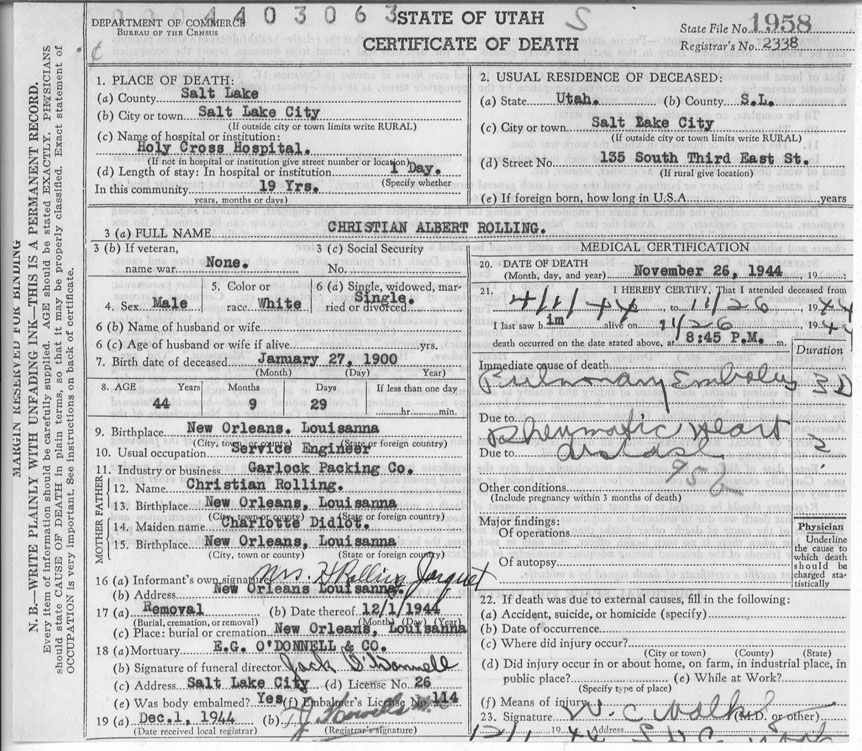 2 0 4 4 0 3 0 6 3
DEPARTMENT OF COMMERCE
BUREAU OF THE CENSUS
STATE OF UTAH
CERTIFICATE OF DEATH
S
State File No. 1958
Registrar's No. 2338
MARGIN RESERVED FOR BINDING
N. B.—WRITE PLAINLY WITH UNFADING INK—THIS IS A PERMANENT RECORD.
Every item of information should be carefully supplied. AGE should be stated EXACTLY. PHYSICIANS
should state CAUSE OF DEATH in plain terms, so that it may be properly classified. Exact statement of
OCCUPATION is very important. See instructions on back of certificate.
1. PLACE OF DEATH:
(a) County Salt Lake
(b) City or town Salt Lake City
(If outside city or town limits write RURAL)
(c) Name of hospital or institution:
Holy Cross Hospital.
(If not in hospital or institution give street number or location)
(d) Length of stay: In hospital or institution 1 Day.
(Specify whether
In this community 19 Yrs.
years, months or days)
2. USUAL RESIDENCE OF DECEASED:
(a) State Utah. (b) County S.L.
(c) City or town Salt Lake City
(If outside city or town limits write RURAL)
(d) Street No. 135 South Third East St.
(If rural give location)
(e) If foreign born, how long in U.S.A. years
3 (a) FULL NAME CHRISTIAN ALBERT ROLLING.
3 (b) If veteran,
name war None.
3 (c) Social Security
No.
4. Sex Male
5. Color or
race White
6 (a) Single, widowed, mar-
ried or divorced Single.
6 (b) Name of husband or wife
6 (c) Age of husband or wife if alive yrs.
7. Birth date of deceased January 27, 1900
(Month) (Day) Year)
8. AGE Years Months Days If less than one day
44 9 29 hr. min.
9. Birthplace New Orleans. Louisanna
(City, town, or county) (State or foreign country)
10. Usual occupation Service Engineer
11. Industry or business Garlock Packing Co.
FATHER
12. Name Christian Rolling.
13. Birthplace New Orleans, Louisanna
(City, town or county) (State or foreign country)
MOTHER
14. Maiden name Charlotte Didiot.
15. Birthplace New Orleans, Louisanna
(City, town or county) (State or foreign country)
16 (a) Informant's own signature Mrs. Rolling Jarquet
(b) Address New Orleans Louisanna.
17 (a) Removal (b) Date thereof 12/1/1944
(Burial, cremation, or removal) (Month) (Day) (Year)
(c) Place: burial or cremation New Orleans, Louisanna
18 (a) Mortuary E.G. O'DONNELL & CO.
(b) Signature of funeral director Jack O'Donnell
(c) Address Salt Lake City (d) License No. 26
(e) Was body embalmed? Yes (f) Embalmer's License No. 114
19 (a) Dec.1, 1944 (b)
(Date received local registrar) (Registrar's signature)
MEDICAL CERTIFICATION
20. DATE OF DEATH
(Month, day, and year) November 26, 1944 19
21. I HEREBY CERTIFY, That I attended deceased from
4/1/44, to 11/26 1944
I last saw h im alive on 11/26 1944
death occurred on the date stated above, at 8:45 P.M. m.
Duration
Immediate cause of death
Pulmonary Embolus 3 D
Due to
Rheumatic Heart
Due to disease
95b
Other conditions
(Include pregnancy within 3 months of death)
Major findings:
Of operations
Of autopsy
Physician
Underline
the cause
to which
death
should be
charged sta-
tistically
22. If death was due to external causes, fill in the following:
(a) Accident, suicide, or homicide (specify)
(b) Date of occurrence
(c) Where did injury occur?
(City or town) (County) (State)
(d) Did injury occur in or about home, on farm, in industrial place, in
public place? (e) While at Work?
(Specify type of place)
(f) Means of injury
23. Signature W. C. Walker (M.D. or other)
12/1 1944 Address S L C Utah